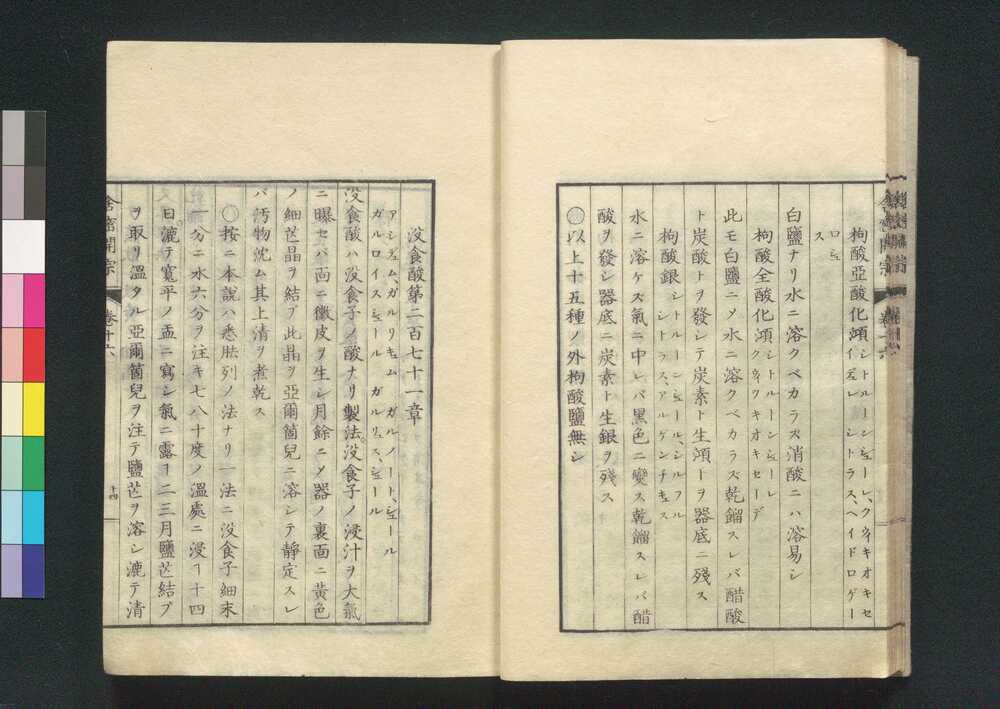 枸酸亞酸化澒シトルーンシューレ、クウィキオキセ
イデュレ シトラス、ヘイドロゲー
ロシュ
ス
白鹽ナリ水ニ溶クベカラス消酸ニハ溶易シ
枸酸全酸化澒シトルーンシューレ
クウィクキオキセーデ
此モ白鹽ニメ水ニ溶クベカラズ乾鎦スレバ醋酸
ト炭酸トヲ發シテ炭素ト生澒トヲ器底ニ殘ス
枸酸銀シトルーンシュール、シルフル
シトラス、アルゲンチキュス
水ニ溶ケズ氣ニ中レバ黑色ニ變ス乾鎦スレバ醋
酸ヲ發シ器底ニ炭素ト生銀ヲ殘ス
◯以上十五種ノ外枸酸鹽無シ
沒食酸第二百七十一章
アシデュム、ガルリキュム ガルノート、シュール
ガルロイスシュール ガルリュス、シュール
沒食酸ハ沒食子ノ酸ナリ製法沒食子ノ浸汁ヲ大氣
ニ曝セバ面ニ黴皮ヲ生シ月餘ニメ器ノ裏面ニ黃色
ノ細芒晶ヲ結ブ此晶ヲ亞爾箇兒ニ溶シテ靜定スレ
バ汚物沈ム其上清ヲ煮乾ス
◯按ニ本說ハ悉胠列ノ法ナリ一法ニ沒食子細末
一分ニ水六分ヲ注キ七八十度ノ溫處ニ浸ヿ十四
日漉テ寬平ノ盂ニ寫シ氣ニ露ヿ二三月鹽芒結ブ
ヲ取リ溫タル亞爾箇兒ヲ注テ鹽芒ヲ溶シ漉テ清
舎密開宗
卷十六
十四